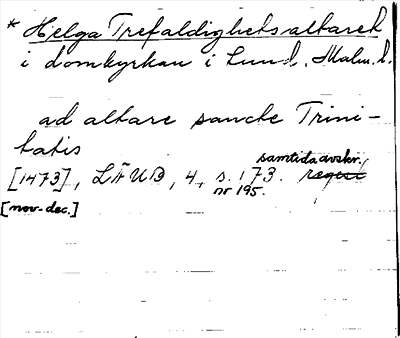 * Helga Trefaldighetsaltaret
i domkyrkan i Lund. Malm. l.
ad altare sancte Trini-
tatis
samtida avskr.
[1473], LÄUB, 4, s. 173. regest
nr 195.
[nov-dec.]